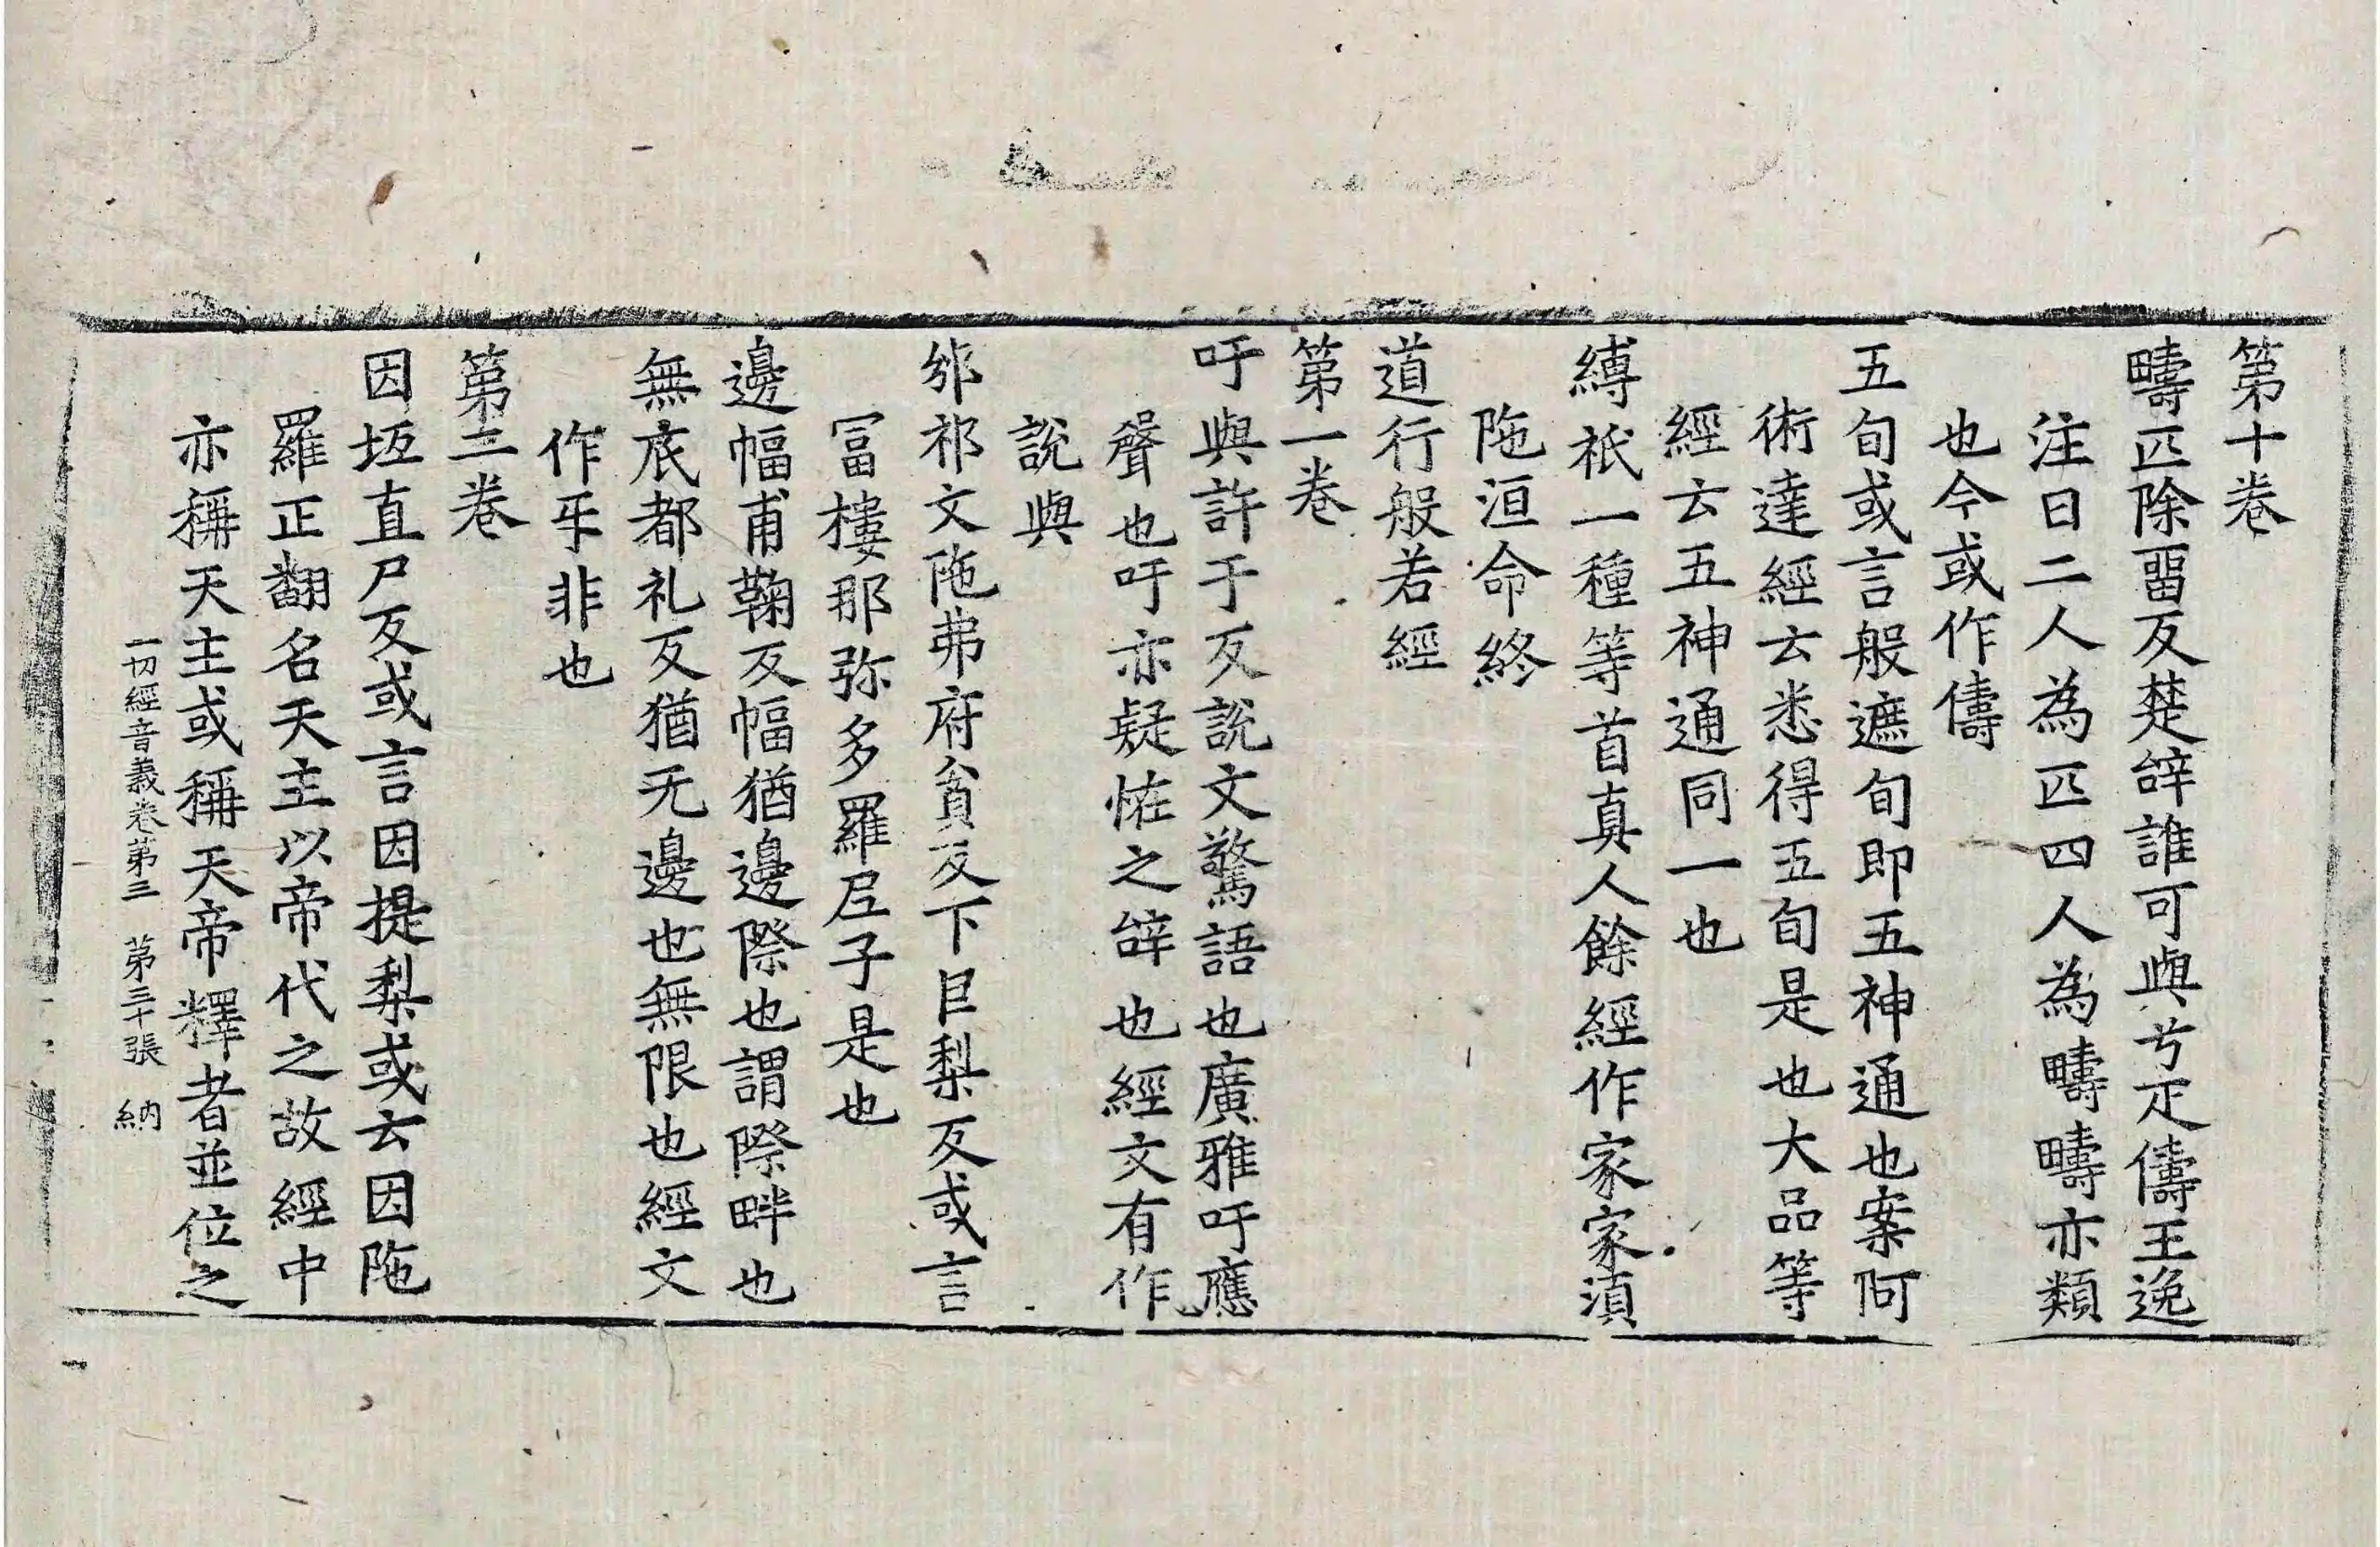 第十卷
疇匹除畱反楚辝誰可與兮疋儔王逸
注曰二人為匹四人為疇疇亦類
也今或作儔
五旬或言般遮旬即五神通也案阿
術達經云悉得五旬是也大品等
經云五神通同一也
縛祇一種等首真人餘經作家家湏
陁洹命終
道行般若經
第一卷
吁與許于反說文驚語也廣雅吁應
聲也吁亦疑恠之辝也經文有作
說與
邠祁文陁弗府貧反下巨梨反或言
冨樓那弥多羅𡰱子是也
邊幅甫鞠反幅猶邊際也謂際畔也
無底都礼反猶无邊也無限也經文
作㡳非也
第二卷
因坻直尸反或言因提梨或云因陁
羅正翻名天主以帝代之故經中
亦稱天主或稱天帝釋者並位之
一切經音義卷第三　第三十張　納